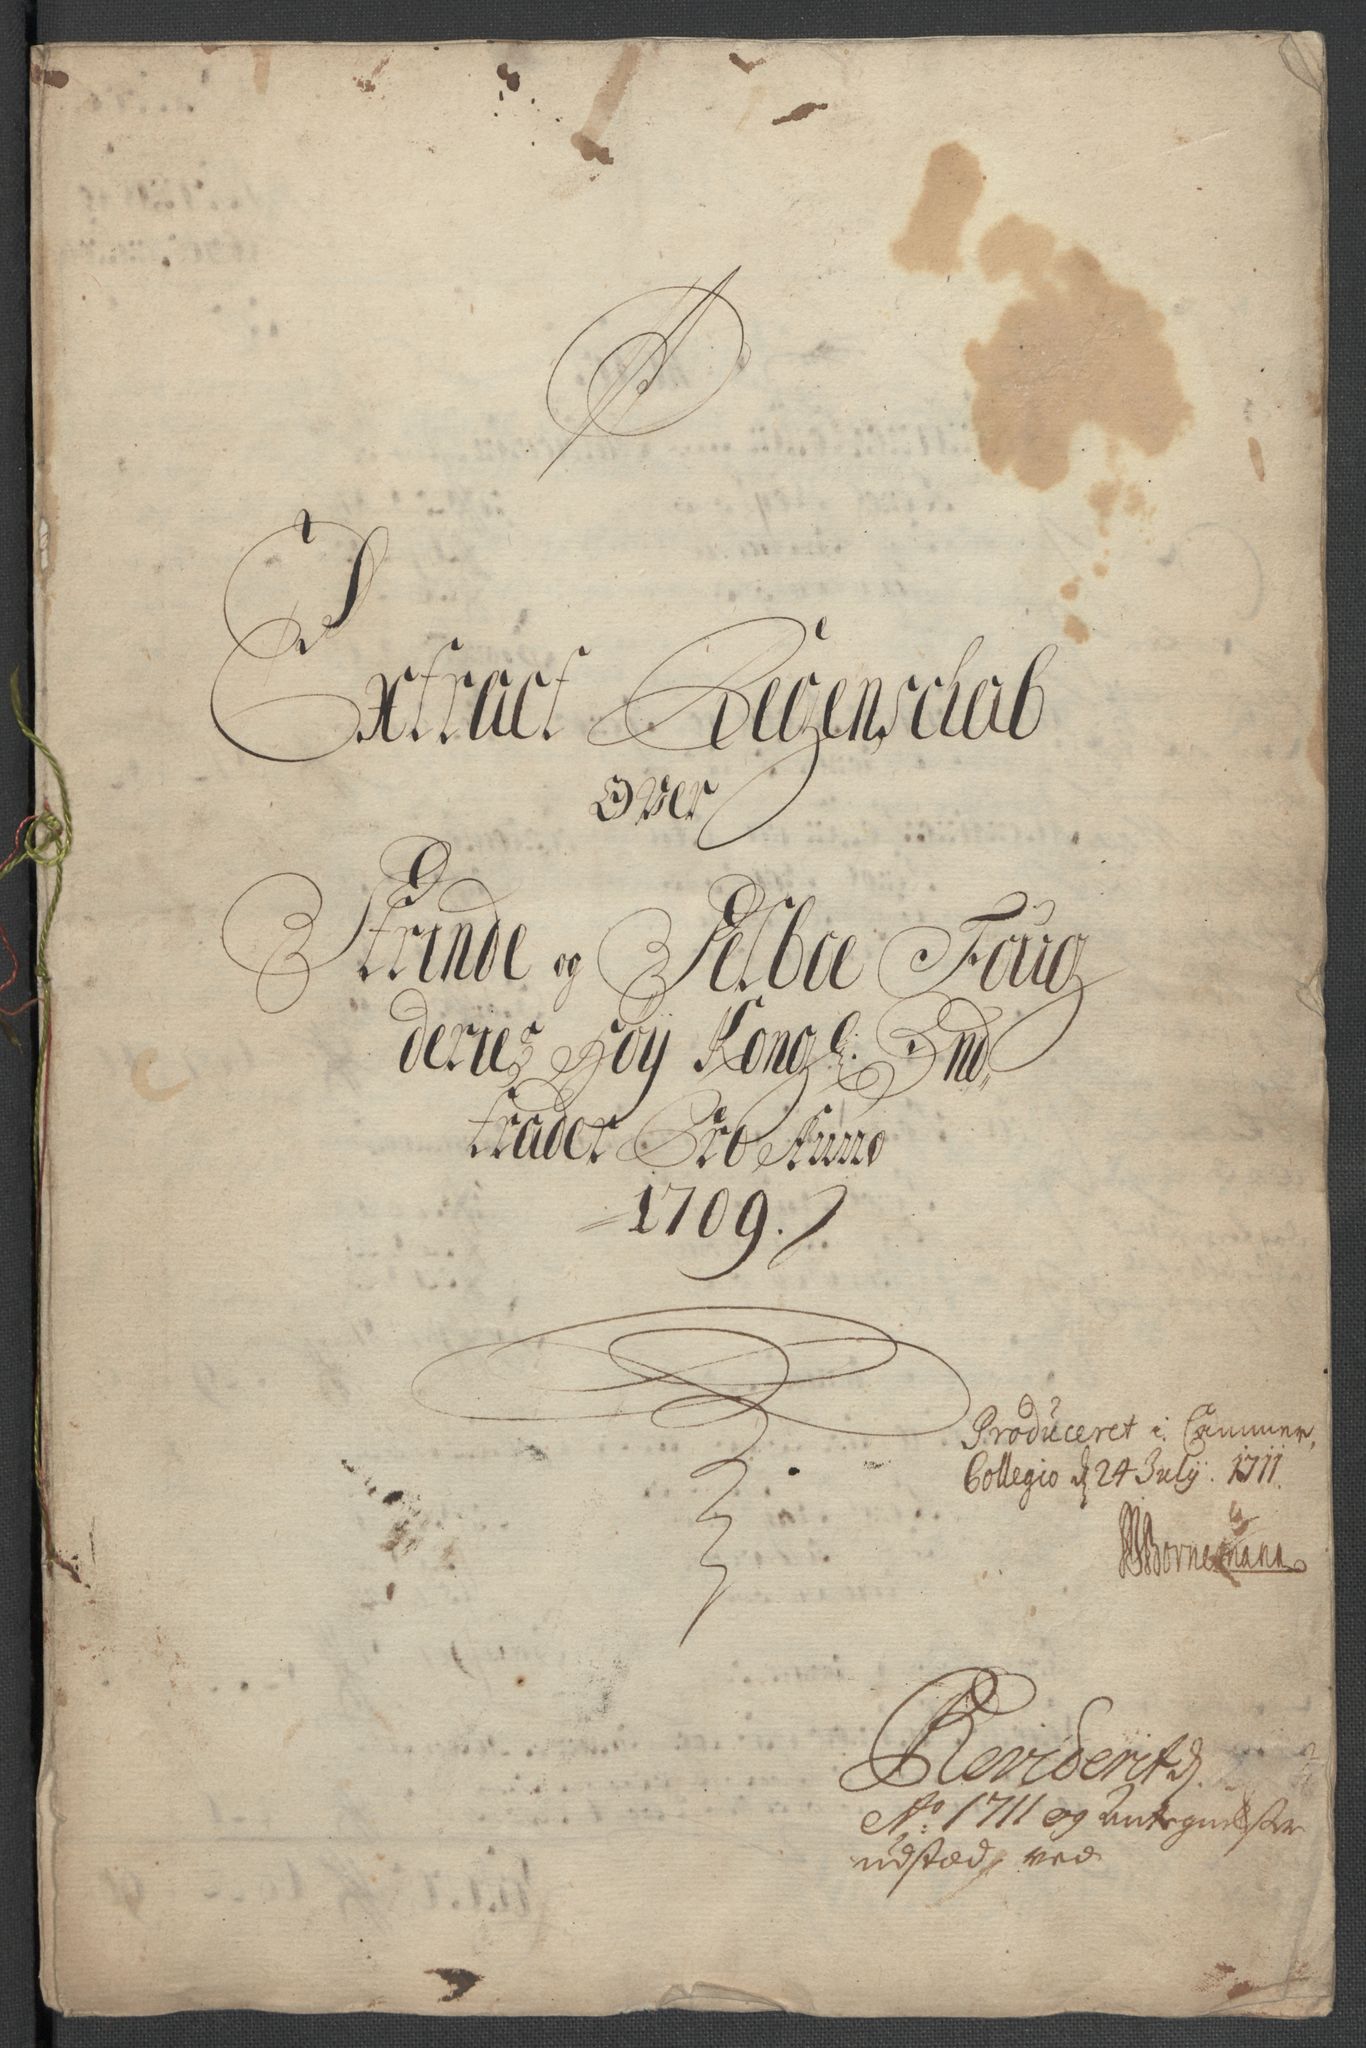 Extract Regenschab
Over
Strinde og Selboe Foug
deries Høy Kongl. Ind„
trader Pro Anno
1709.
Produceret i Cammer,
Collegio d 24 July. 1711.
Bornemann
Revideret d.
Ao: 1711 og Antegnelser
udstæd, ved